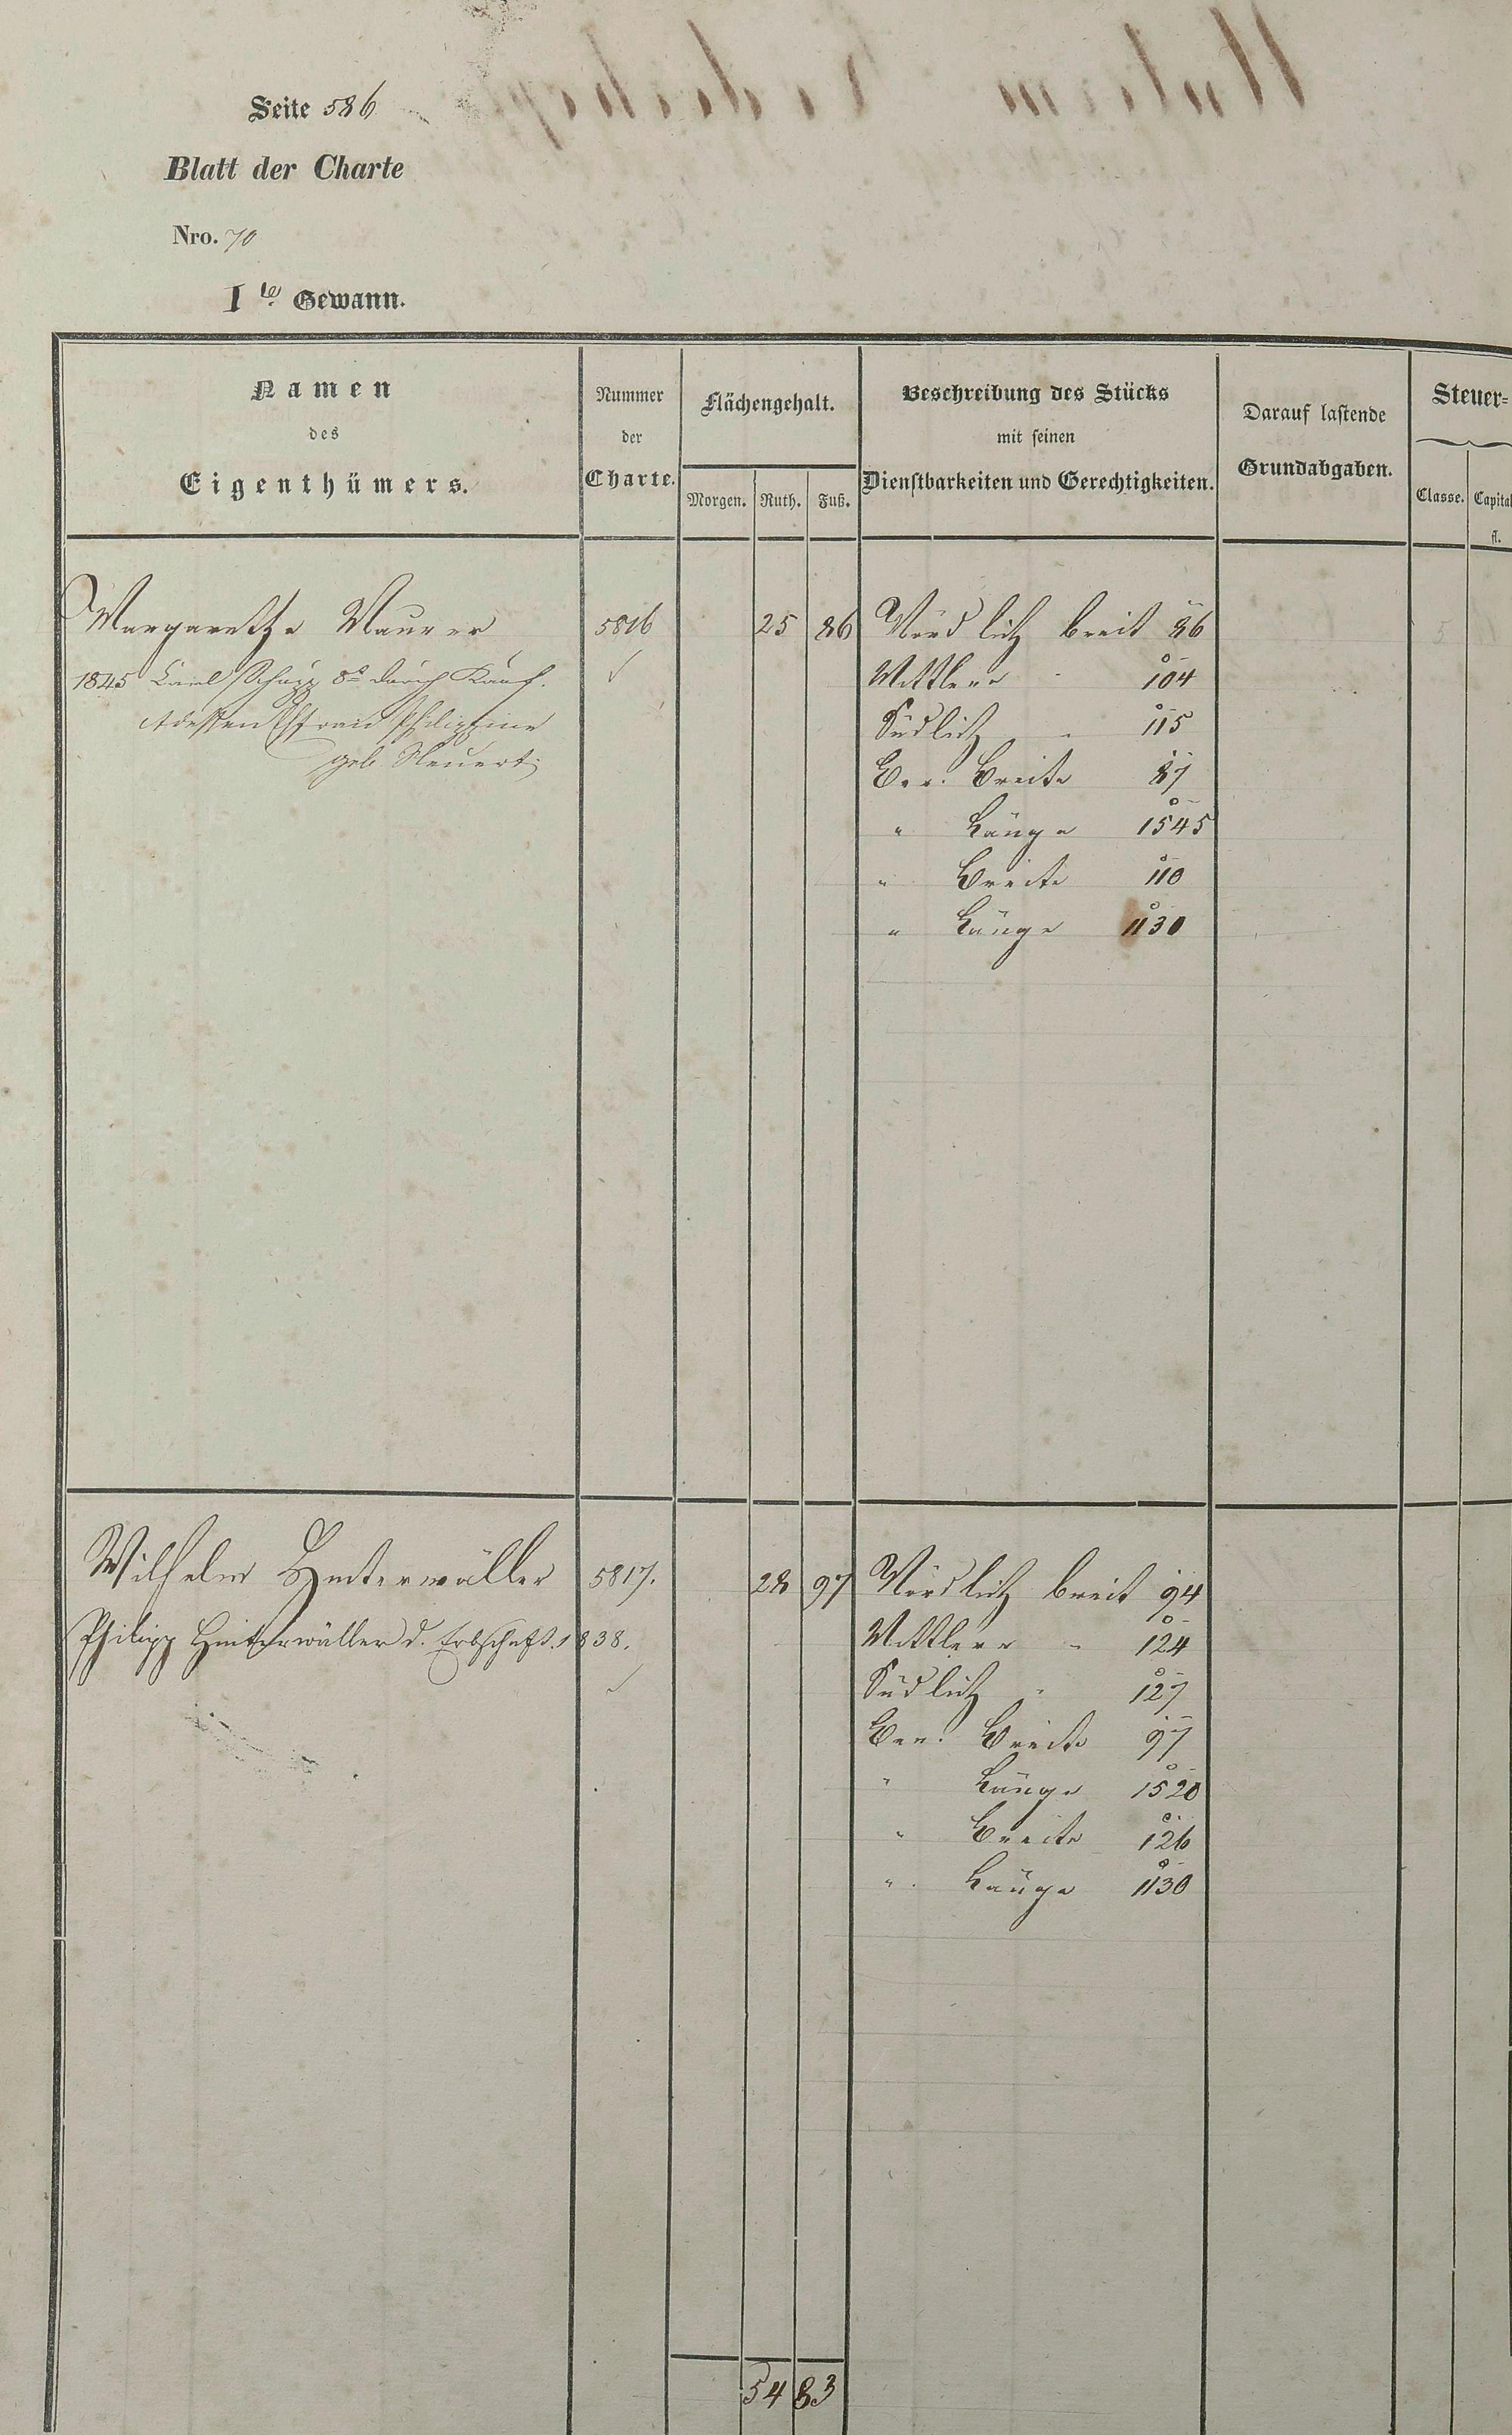 Seite 586
Blatt der Charte
Nro. 70
I te Gewann.
Namen
des
Eigenthümers.
Nummer
der
Charte.
Flächengehalt.
Morgen. Ruth. Fuß.
Beschreibung des Stücks
mit seinen
Dienstbarkeiten und Gerechtigkeiten.
Darauf lastende
Grundabgaben.
Steuer=
Classe. Capital
fl.
Margaretha Maurer 5816 25 86 Nördlich breit 86
1845 Carl Schupp 8t durch Kauf. Mittlere " 104
Südlich " 115
Philippine
geb.
Ber. Breite 87
" Länge 1545
" Breite 110
" Länge 1130
Wilhelm Hinterwäller 5817. 28 97 Nördlich breit 94
Philipp Hinterwäller d. Erbschaft. 1838. Mittlere " 124
Südlich " 127
Ber. Breite 97
" Länge 1520
" Breite 126
" Länge 1130
54 83